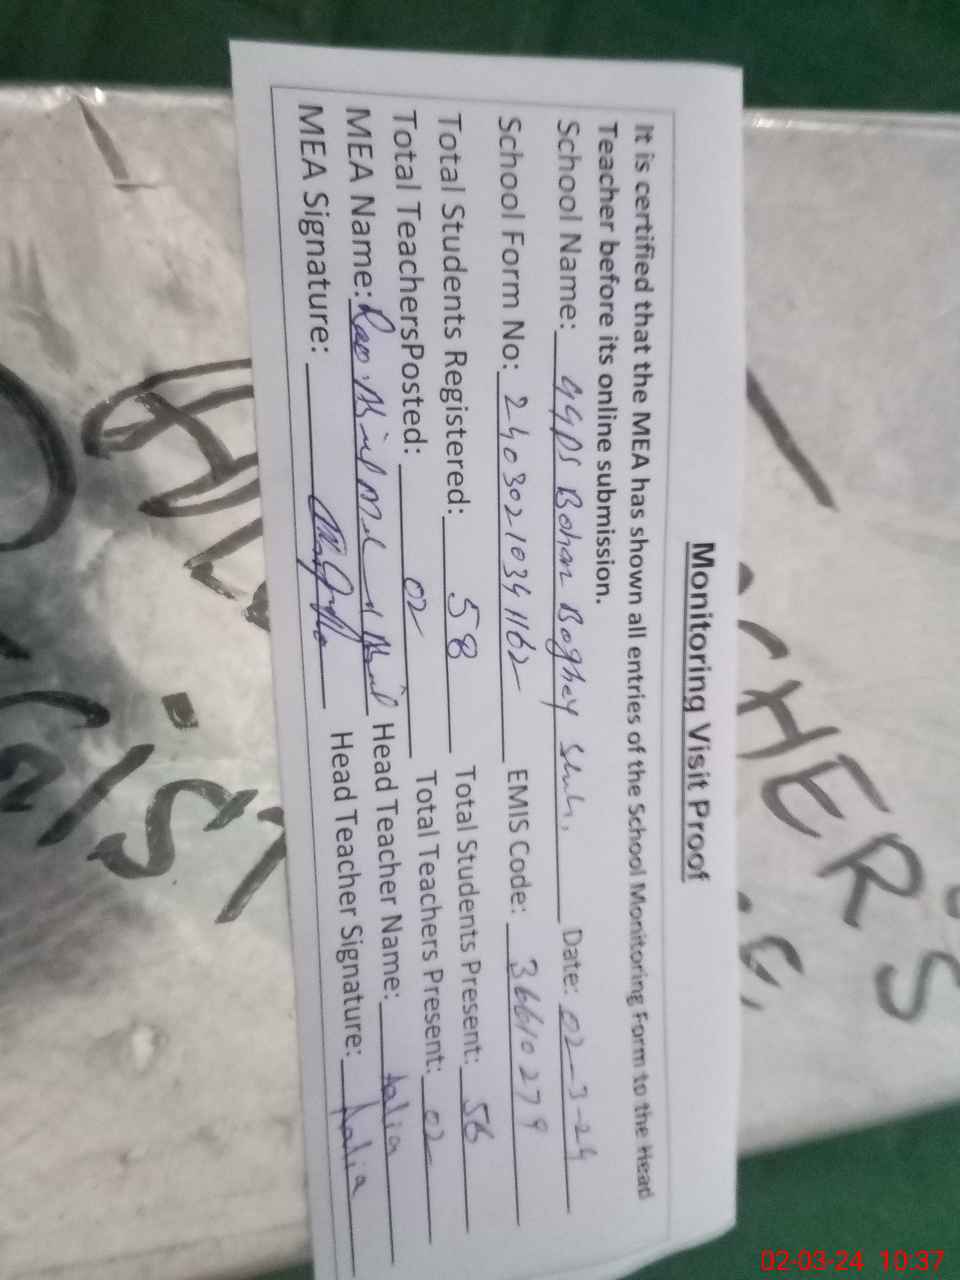 Monitoring Visit Proof
It is certified that the MEA has shown all entries of the School Monitoring Form to the Head
Teacher before its online submission.
School Name: GGPS Bohar Boghey Shah. Date: 02-3-24
School Form No: 24030210341162 EMIS Code: 36610279
Total Students Registered: 58 Total Students Present: 56
Total TeachersPosted: 02 Total Teachers Present: 02
MEA Name: Rao Head Teacher Name:
MEA Signature: Head Teacher Signature:
CHERS
02-03-24 10:37